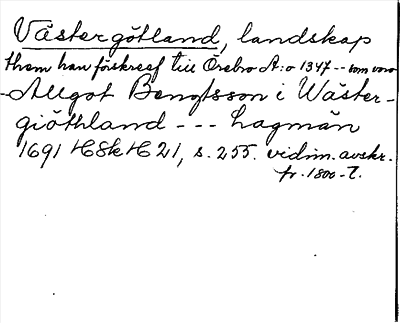 Västergötland, landskap
them han förskreef till Örebro A:o 1347 -- som voro
- Allgot Bengtsson i Wäster-
giöthland --- Lagmän
1691 HSk H 21, s. 255. vidim. avskr.
fr. 1800-t.